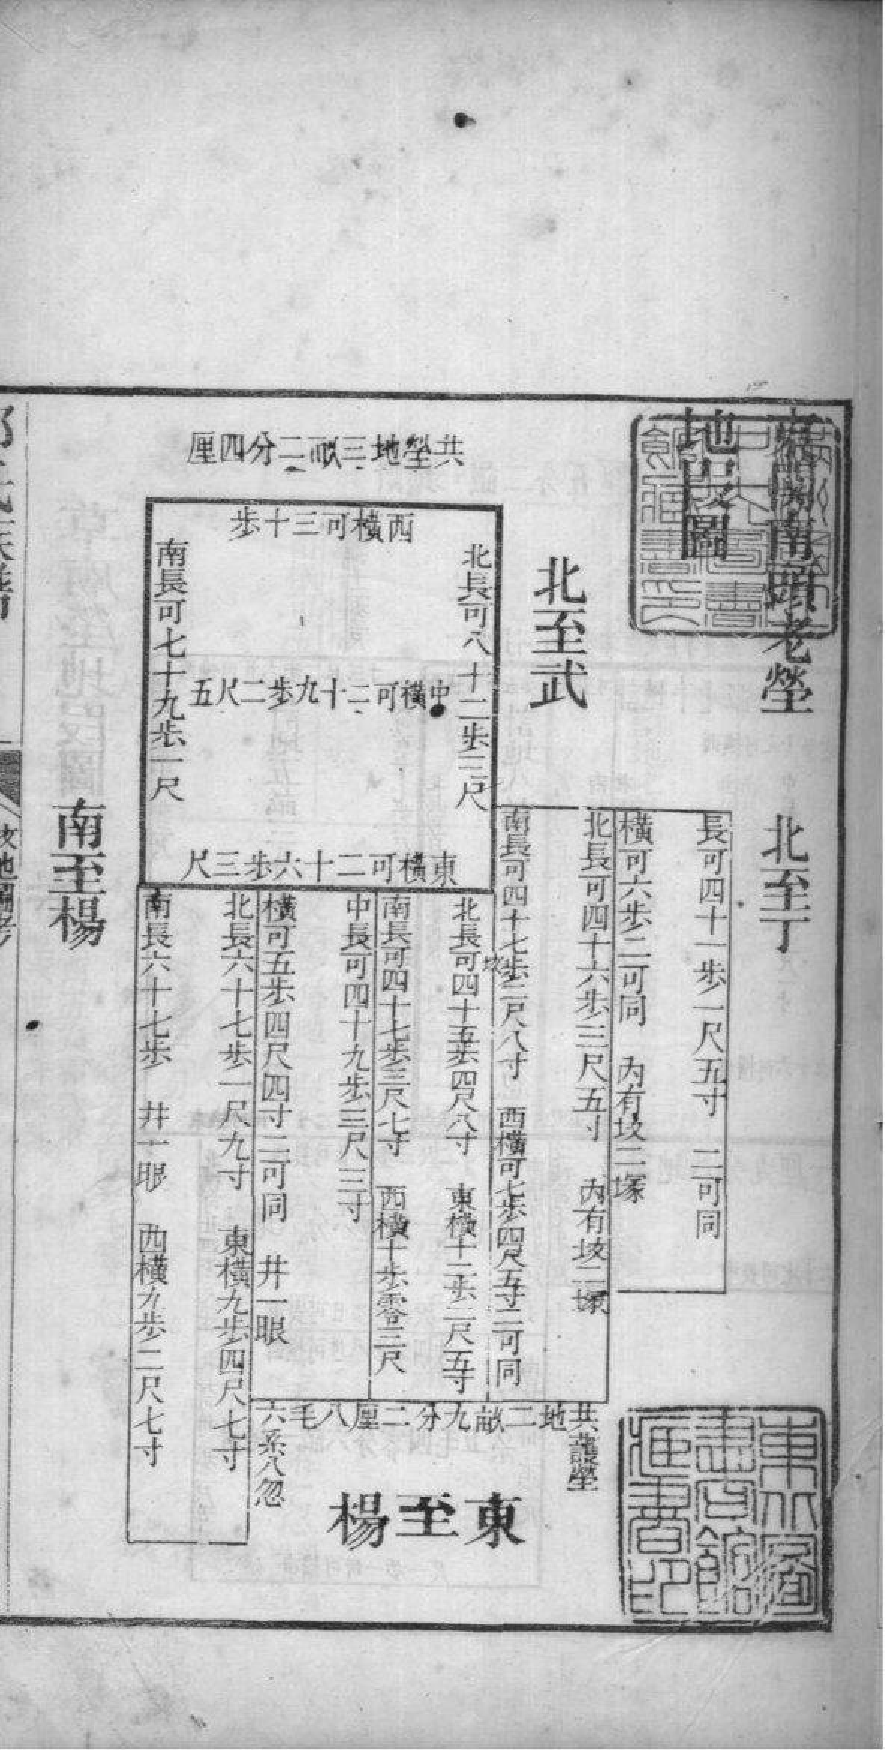 嘉關南頭老塋
地段圖
北至丁
北至武
共塋地三畝二分四厘
西橫可三十步
北長可八十二步三尺
中橫可二十九步二尺五
南長可七十九步一尺
東橫可二十六步三尺
長可四十一步一尺五寸 二可同
橫可六步二可同 內有坟二塚
北長可四十六步三尺五寸 內有坟二塚
南長可四十七步二尺八寸 西橫可七步四尺五寸二可同
北長可四十五步四尺八寸 東橫十二步二尺五寸
南長可四十七步三尺七寸 西橫十步零三尺
中長可四十九步三尺三寸
橫可五步四尺四寸二可同 井一眼
北長六十七步一尺九寸 東橫九步四尺七寸
南長六十七步 井一眼 西橫九步二尺七寸
共護塋
地二畝九分二厘八毛
六系八忽
東至楊
南至楊